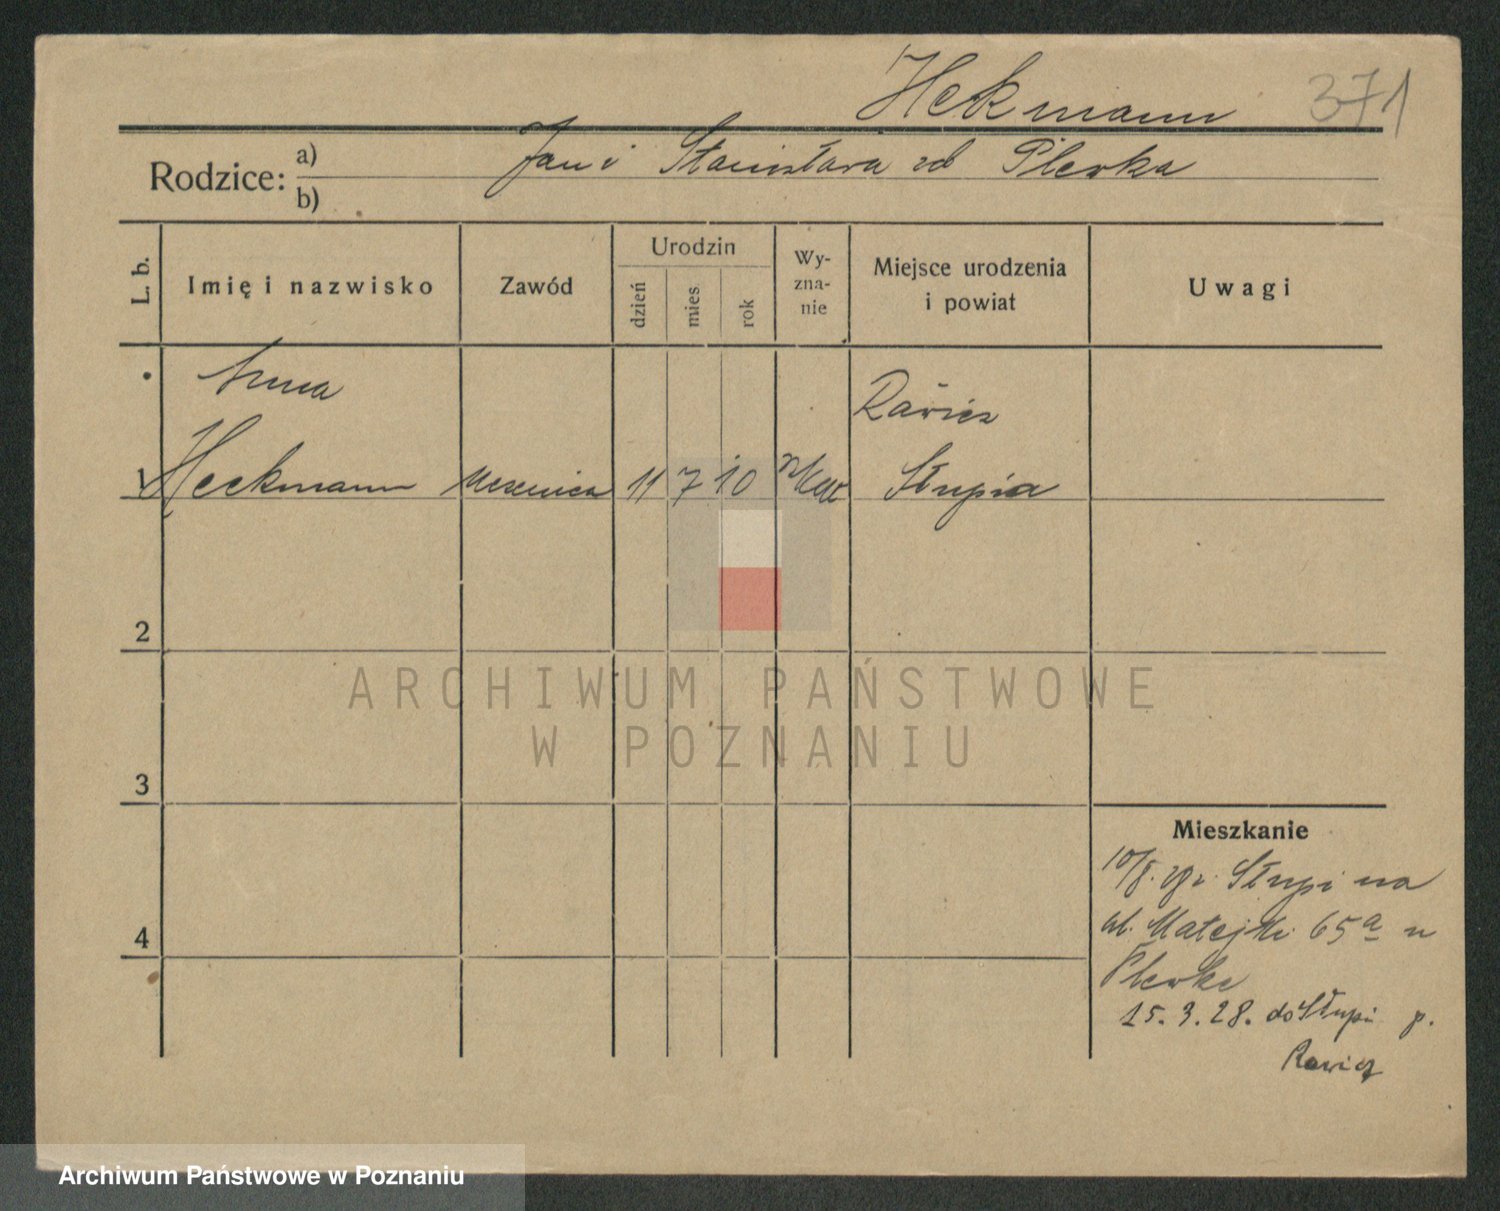 Hekmann 371
Rodzice: a) Jan i Stanisława zd Plewka
b)
L. b.
Imię i nazwisko
Zawód
Urodzin
dzień
mies.
rok
Wy-
zna-
nie
Miejsce urodzenia
i powiat
Uwagi
Anna
Rawicz
1 Heckmann uczenica 11 7 10 Słupia
2
3
4
Mieszkanie
10/8. Słupi na
ul. Matejki 65a u
Plewke
15.3.28. do Słupi p.
Rawicz
ARCHIWUM PAŃSTWOWE
W POZNANIU
Archiwum Państwowe w Poznaniu